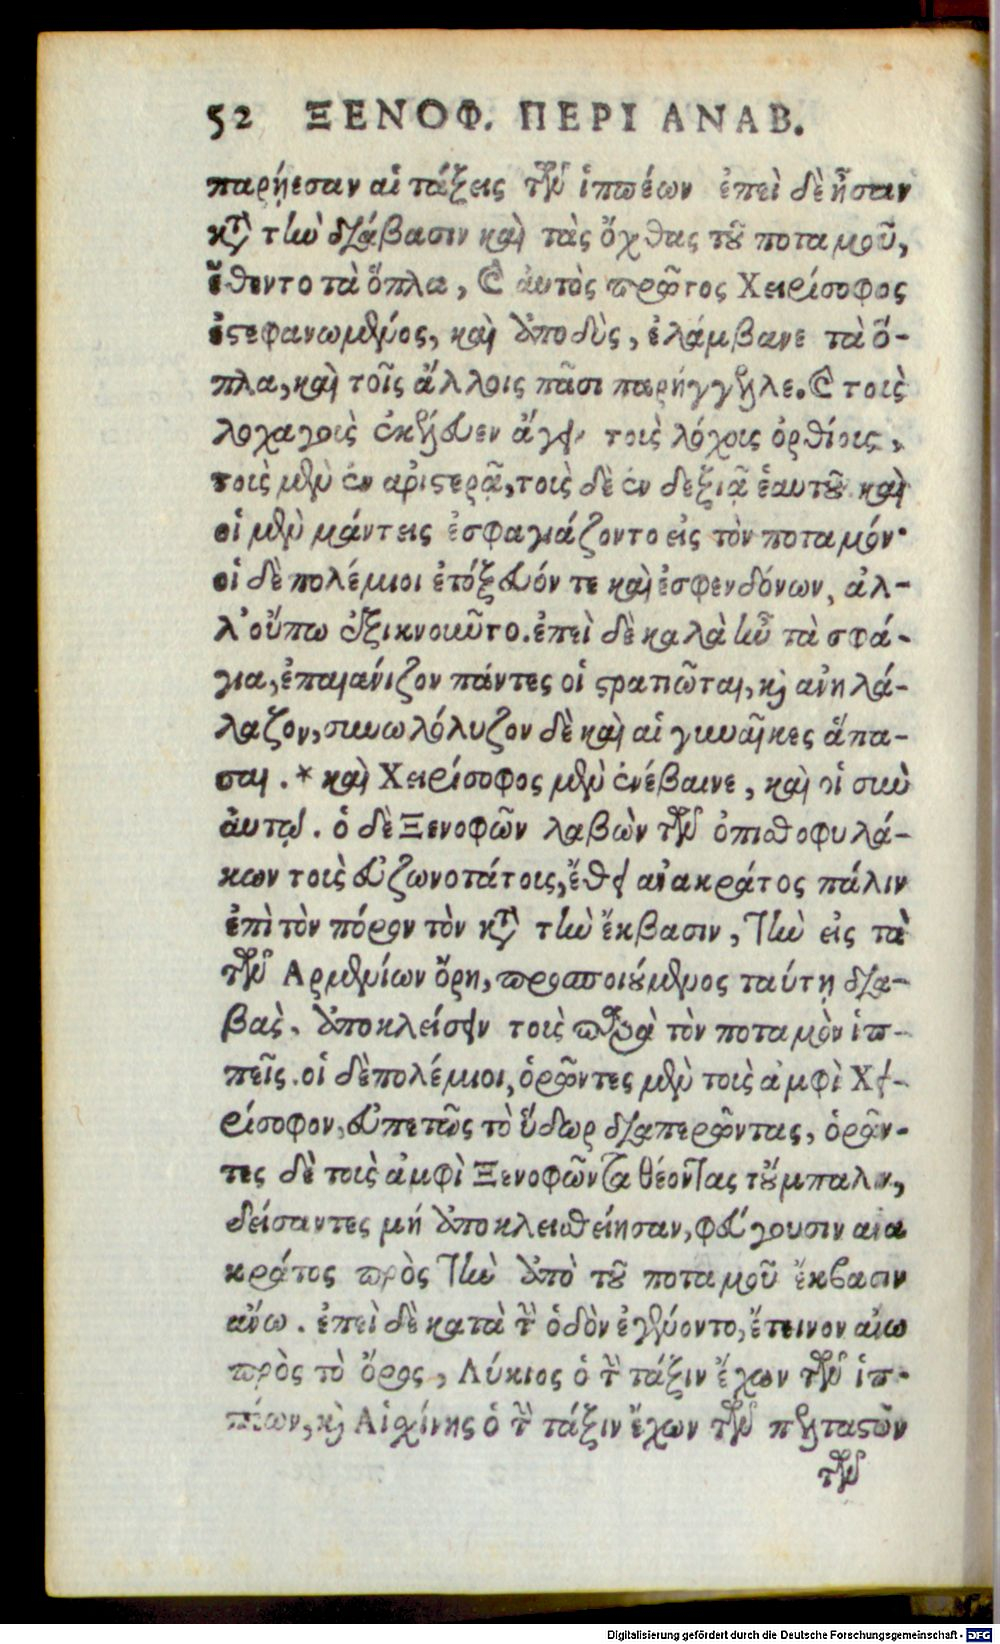 52 ΞΕΝΟΦ. ΠΕΡΙ ΑΝΑΒ.
παρῄεσαν αἱ τάξεις τῶν ἱππέων ἐπεὶ δὲ ἦσαν
κατὰ τὴν διάβασιν καὶ τὰς ὄχθας τοῦ ποταμοῦ,
ἔθεντο τὰ ὅπλα, καὶ ἀυτὸς πρῶτος Χειρίσοφος
ἐστεφανωμένος, καὶ ἀποδὺς, ἐλάμβανε τὰ ὅ-
πλα, καὶ τοῖς ἄλλοις πᾶσι παρήγγελλε. καὶ τοὺς
λοχαγοὺς ἐκέλευεν ἄγειν τοὺς λόχους ὀρθίους,
τοὺς μὲν ἐν αρἰστερᾷ, τοὺς δὲ ἐν δεξιᾷ ἑαυτοῦ καὶ
οἱ μὲν μάντεις ἐσφαγιάζοντο εἰς τὸν ποταμόν·
οἱ δὲ πολέμιοι ἐτόξευόν τε καὶ ἐσφενδόνων, ἀλ-
λ' οὔπω ἐξικνοιῦτο. ἐπεὶ δὲ καλὰ ἦν τὰ σφά-
για, ἐπαιάνιζον πάντες οἱ στρατιῶται, καὶ ανἠλά-
λαζον, συνωλόλυζον δὲ καὶ αἱ γυναῖκες ἅπα-
σαι. * καὶ Χειρίσοφος μὲν ἐνέβαινε, καὶ οἱ σὺν
ἀυτῷ. ὁ δὲ Ξενοφῶν λαβὼν τῶν ὀπισθοφυλά-
κων τοὺς εὐζωνοτάτους, ἔθει ανὰκράτος πάλιν
ἐπὶ τὸν πόρον τὸν κατὰ τὴν ἔκβασιν, τὴν εἰς τὰ
τῶν Αρμενίων ὄρη, προσποιούμενος ταύτῃ δια-
βὰς, ἀποκλείσειν τοὺς παρὰ τὸν ποταμὸν ἱπ-
πεῖς. οἱ δὲ πολέμιοι, ὁρῶντες μὲν τοὺς ἀμφὶ Χει-
ρίσοφον, εὐπετῶς τὸ ὕδωρ διαπερῶντας, ὁρῶν-
τες δὲ τοὺς ἀμφὶ Ξενοφῶντα θέοντας τοὔμπαλιν,
δείσαντες μή ἀποκλεισθείησαν, φεύγουσιν ανὰ
κράτος πρὸς τὴν ἀπὸ τοῦ ποταμοῦ ἔκβασιν
ἄνω. ἐπεὶ δὲ κατὰ τὴν ὁδὸν ἐγένοντο, ἔτεινον ἄνω
πρὸς τὸ ὄρος, Λύκιος ὁ τὴν τάξιν ἔχων τῶν ἱπ-
πέων, καὶ Αἰσχίνης ὁ τὴν τάξιν ἔχων τῶν πελταστῶν
τῶν
Digitalisierung gefördert durch die Deutsche Forschungsgemeinschaft - DFG